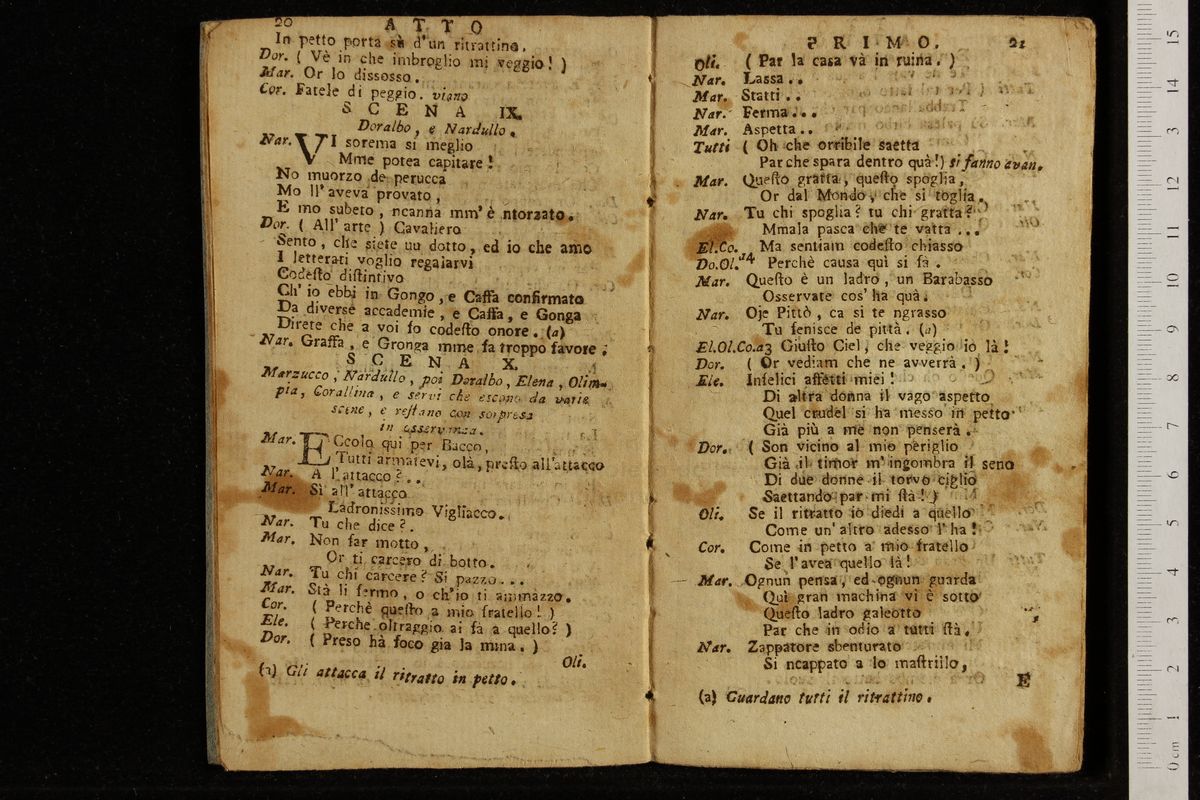 20 ATTO
In petto porta sù d'un ritrattino.
Dor. ( Vè in che imbroglio mi veggio! )
Mar. Or lo dissosso.
Cor. Fatele di peggio. viano
SCENA IX.
Doralbo, e Nardullo.
Nar. VI sorema si meglio
Mme potea capitare!
No muorzo de perucca
Mo ll'aveva provato,
E mo subeto, ncanna mm'è ntorzato.
Dor. ( All'arte ) Cavaliero
Sento, che siete uu dotto, ed io che amo
I letterati voglio regalarvi
Codeſto diſtintivo
Ch'io ebbi in Gongo, e Caffa confirmato
Da diverse accademie, e Caffa, e Gonga
Direte che a voi fo codeſto onore. (a)
Nar. Graffa, e Gronga mme fa troppo favore;
SCENA X.
Marzucco, Nardullo, poi Doralbo, Elena, Olim-
pia, Corallina, e servi che escono da varie
scene, e reſtano con sorpresa
in osservanza.
Mar. ECcolo qui per Bacco,
Tutti armatevi, olà, preſto all'attacco
Nar. A l'attacco?..
Mar. Si all'attacco
Ladronissimo Vigliacco.
Nar. Tu che dice?.
Mar. Non far motto,
Or ti carcero di botto.
Nar. Tu chi carcere? Si pazzo...
Mar. Stà li fermo, o ch'io ti ammazzo.
Cor. ( Perchè queſto a mio fratello! )
Ele. ( Perche oltraggio ai fà a quello? )
Dor. ( Preso hà foco gia la mina. )
Oli.
(a) Gli attacca il ritratto in petto.
PRIMO. 21
Oli. ( Par la casa và in ruina. )
Nar. Lassa..
Mar. Statti..
Nar. Ferma...
Mar. Aspetta..
Tutti ( Oh che orribile saetta
Par che spara dentro quà!) si fanno avan.
Mar. Queſto gratta, queſto spoglia,
Or dal Mondo, che si toglia.
Nar. Tu chi spoglia? tu chi gratta?
Mmala pasca che te vatta...
El.Co. Ma sentiam codeſto chiasso
Do.Ol. a4 Perchè causa quì si fa.
Mar. Queſto è un ladro, un Barabasso
Osservate cos'ha quà.
Nar. Oje Pittò, ca si te ngrasso
Tu fenisce de pittà. (a)
El.Ol.Co.a3 Giuſto Ciel, che veggio io là!
Dor. ( Or vediam che ne avverrà. )
Ele. Infelici affetti miei!
Di altra donna il vago aspetto
Quel crudel si ha messo in petto
Già più a me non penserà.
Dor. ( Son vicino al mio periglio
Già il timor m'ingombra il seno
Di due donne il torvo ciglio
Saettando par mi ſtà! )
Oli. Se il ritratto io diedi a quello
Come un'altro adesso l'ha!
Cor. Come in petto a mio fratello
Se l'avea quello là!
Mar. Ognun pensa, ed ognun guarda
Quì gran machina vi è sotto
Queſto ladro galeotto
Par che in odio a tutti ſtà.
Nar. Zappatore sbenturato
Si ncappato a lo maſtrillo,
E
(a) Guardano tutti il ritrattino.
15
14
13
12
11
10
9
8
7
6
5
4
3
2
1
0 cm